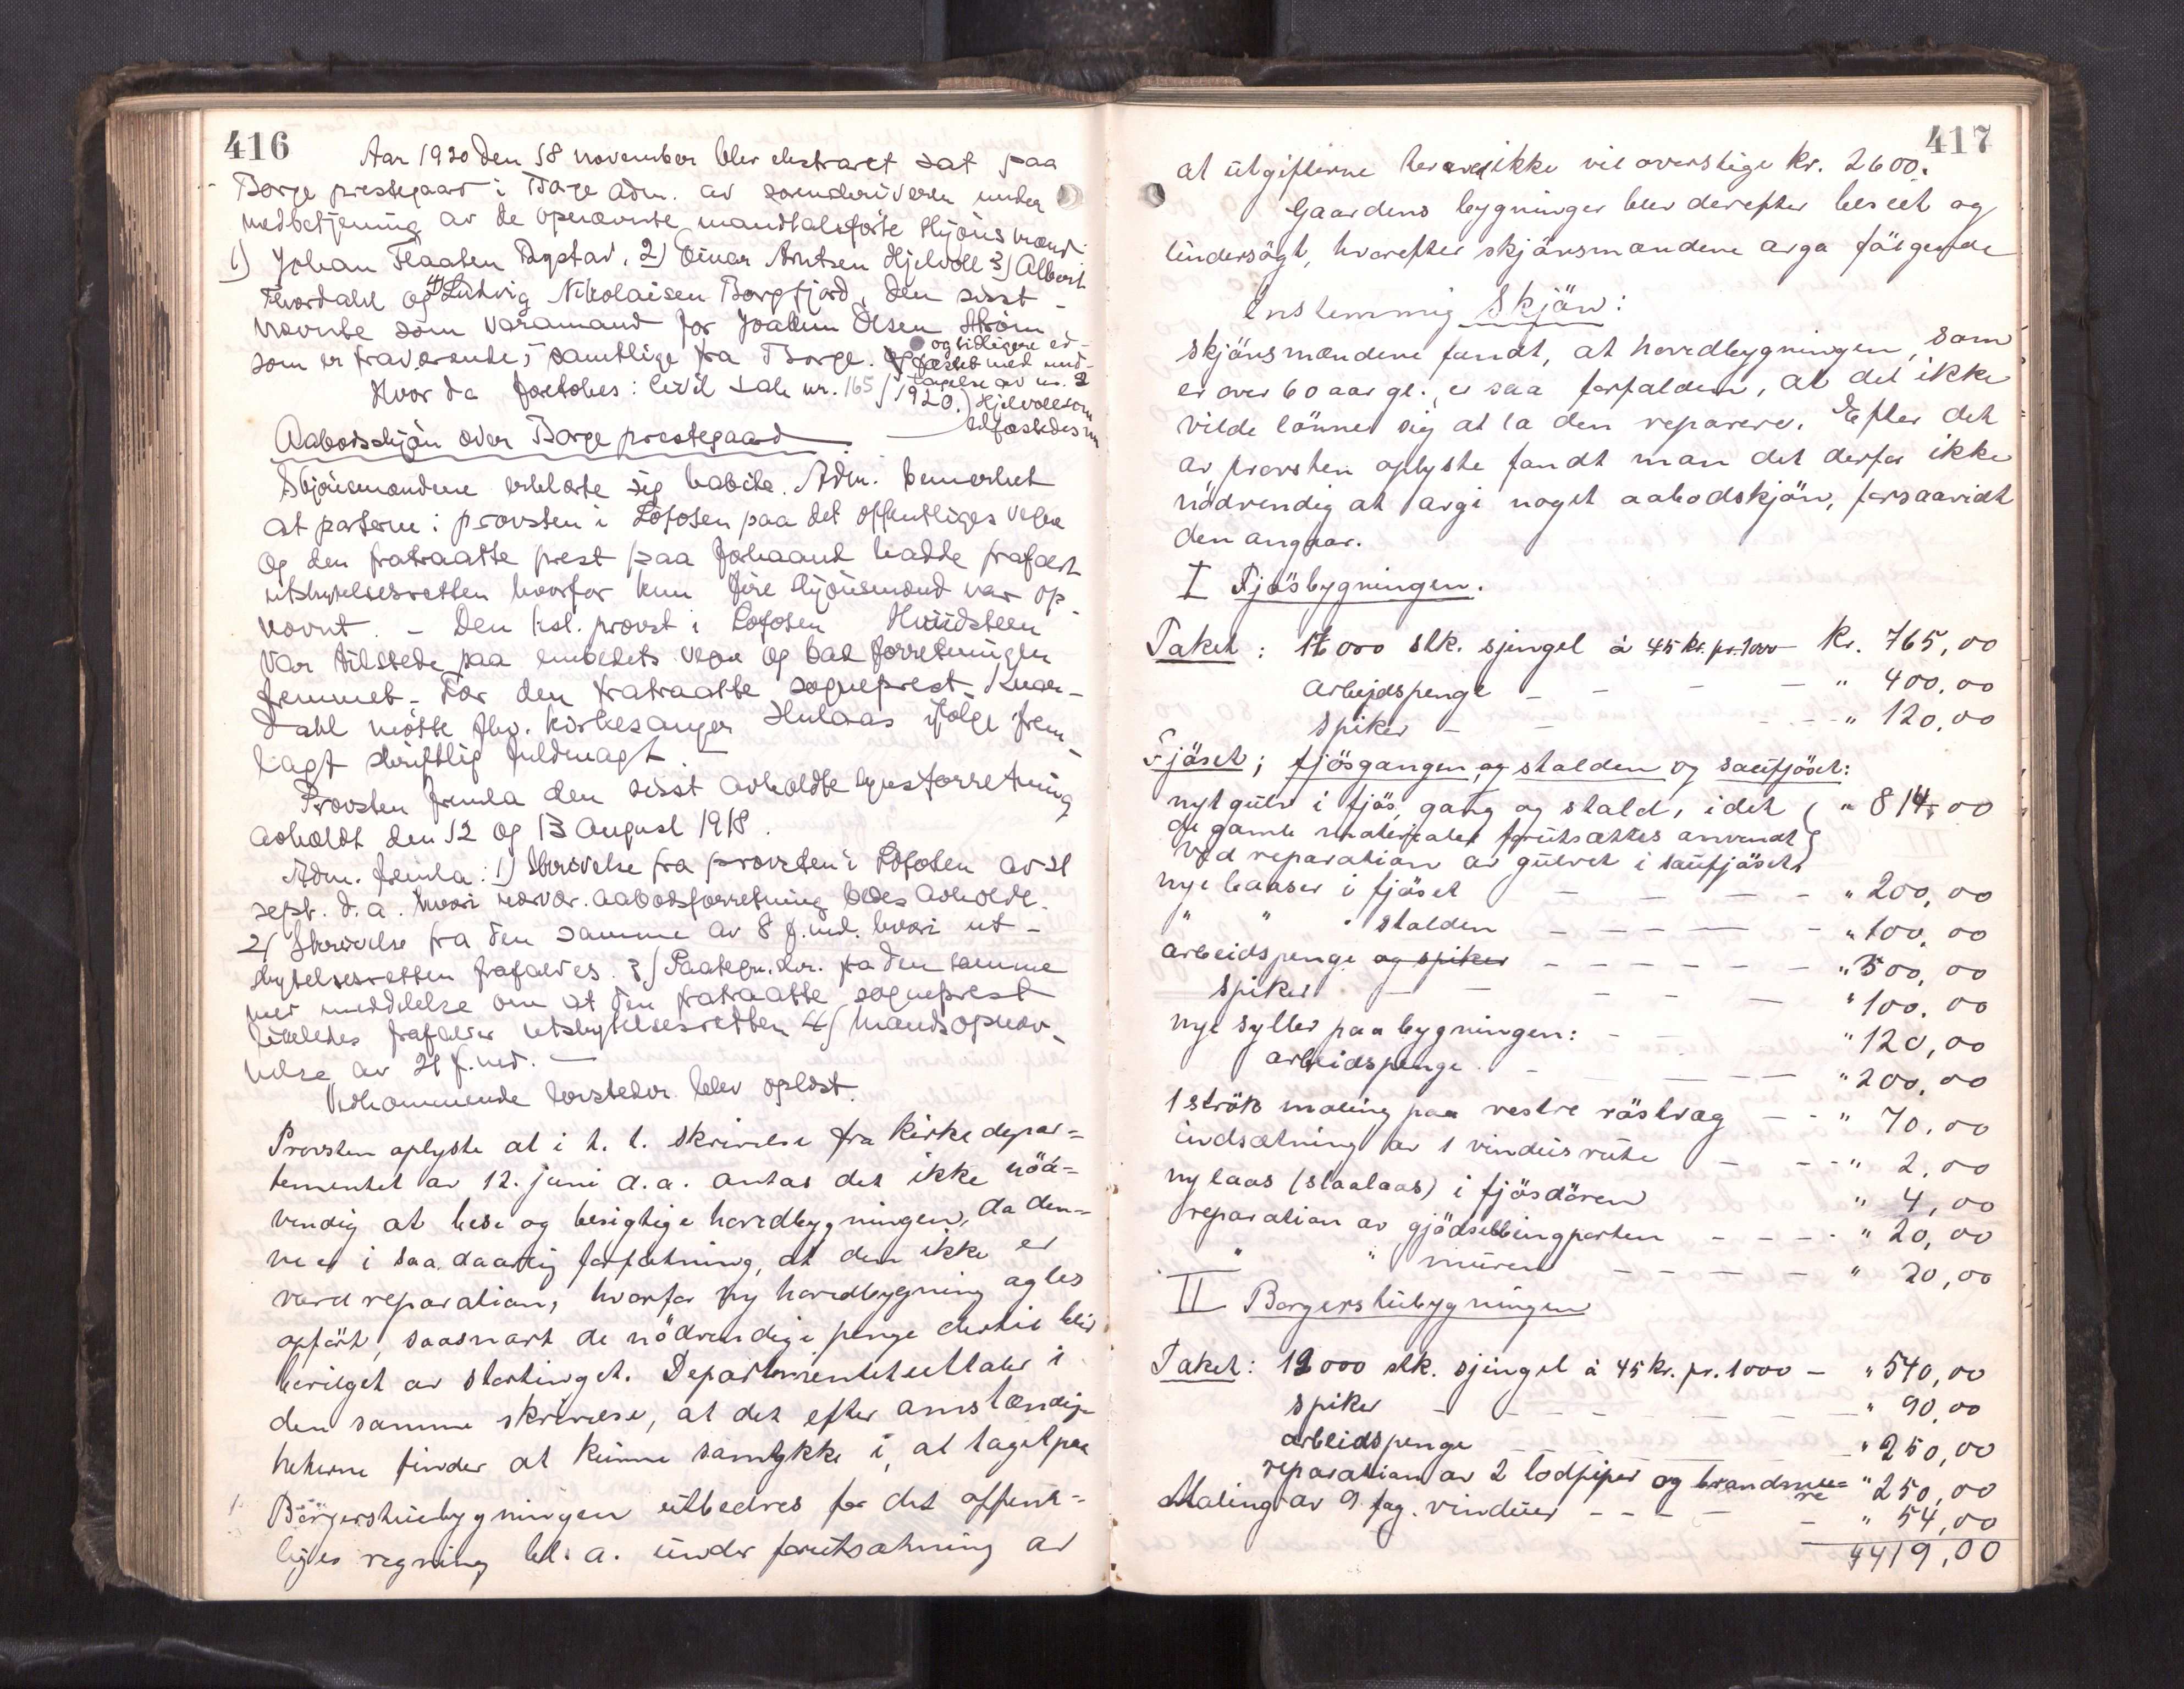 416
Aar 1920 den 18 november blev ekstraret sat paa
Borge prestegaard i Borge adm. av sorenskriveren under
medbetjening av de opnævnte mandtalsførte skjønsmænd:
1) Johan Flaaten Ragstad, 2) Einar Arntsen Hjelvoll 3) Albert
Hordahl og 4) Ludvig Nikolaisen Borgfjord, den sisst-
nævnte som varamand for Joakim Olsen Strøm
som er fraværende; samtlige fra Borge. og tidligere ed-
fæstet med und-
tagelse av nr. 2
Hjelvoll som
edfæstedes nu
Hvor da foretokes: Civil sak nr. 165/1920.
Aabodsskjøn over Borge prestegaard.
Skjønsmændene erklærte sig habile. Adm. bemerket
at parterne: provsten i Lofoten paa det offentliges vegne
og den fratraatte prest paa forhaand hadde frafaldt
utskytelsesretten hvorfor kun fire skjønsmænd var op-
nævnt. - Den kst. provst i Lofoten Hviidsteen
var tilstede paa embedets vegne og bad forretningen
fremmet. For den fratraatte sogneprest Knar-
dahl møtte fhv. kirkesanger Hulaas ifølge frem-
lagt skriftlig fuldmagt.
Provsten fremla den sisst avholdte synsforretning
avholdt den 12 og 13 august 1918.
Adm. fremla: 1) Skrivelse fra provsten i Lofoten av 21
sept. d.a. hvori nærvær. aabodsforretning bedes avholdt.
2) Skrivelse fra den samme av 8 f.md. hvori ut-
skytelsesretten frafaldes. 3) Paategn.skr. fra den samme
med meddelelse om at den fratraatte sogneprest
likeledes frafalder utskytelsesretten 4) Mandsopnæv-
nelse av 21 f.md. —
Vedkommende lovsteder blev oplæst.
Provsten oplyste at i h. t. skrivelse fra Kirkedepar=
tementet av 12. juni d.a. antas det ikke nöd=
vendig at bese og besigtige hovedbygningen, da den=
ne er i saa daarlig forfatning, at den ikke er
værd reparation, hvorfor ny hovedbygning agtes
opfört, saasnart de nödvendige penge dertil blir
bevilget av stortinget. Departementet uttaler i
den samme skrivelse, at det efter omstændig-
heterne finder at kunne samtykke i, at taget paa
Borgerstuebygningen utbedres for det offent=
liges regning bl. a. under forutsætning av
417
at utgifterne herved ikke vil overstige kr. 2600.
Gaardens bygninger blev derefter beseet og
undersögt, hvorefter skjönsmændene avga fölgende
enstemmig Skjön:
Skjönsmændene fandt, at hovedbygningen, som
er over 60 aar gl., er saa forfalden, at det ikke
vilde lönne sig at la den reparere. Efter det
av provsten oplyste fandt man det derfor ikke
nödvendig at avgi noget aabodskjön, forsaavidt
den angaar.
I Fjösbygningen.
Taket: 17000 stk. sjingel à 45 kr. pr. 1000 — Kr. 765,00
arbejdspenge — — — — " 400,00
spiker — — — — " 120,00
Fjöset; fjösgangen og stalden og saufjöset:
nyt gulv i fjös, gang og stald, idet " 814,00
de gamle materialer forutsættes anvendt
ved reparation av gulvet i saufjöset.
nye baaser i fjöset — — — " 200,00
" " " stalden — — — — " 100,00
arbeidspenge og spiker — — — — — " 500,00
spiker — — — — — " 100,00
nye syller paa bygningen: — — " 120,00
arbeidspenge — — — — " 200,00
1 strök maling paa vestre röstvæg — — " 70,00
indsætning av 1 vindusrute — — — " 2,00
ny laas (staalaas) i fjösdören " 4,00
reparation av gjödselbingporten — — — — " 20,00
" " muren — — — — " 20,00
II Borgerstubygningen
Taket: 12000 stk. sjingel à 45 kr. pr. 1000 — " 540,00
spiker — — — — — — " 90,00
arbeidspenge — — " 250,00
reparation av 2 lodpiper og brandmu=
re " 250,00
Maling av 9 fag. vinduer — — — — " 54,00
4419,00